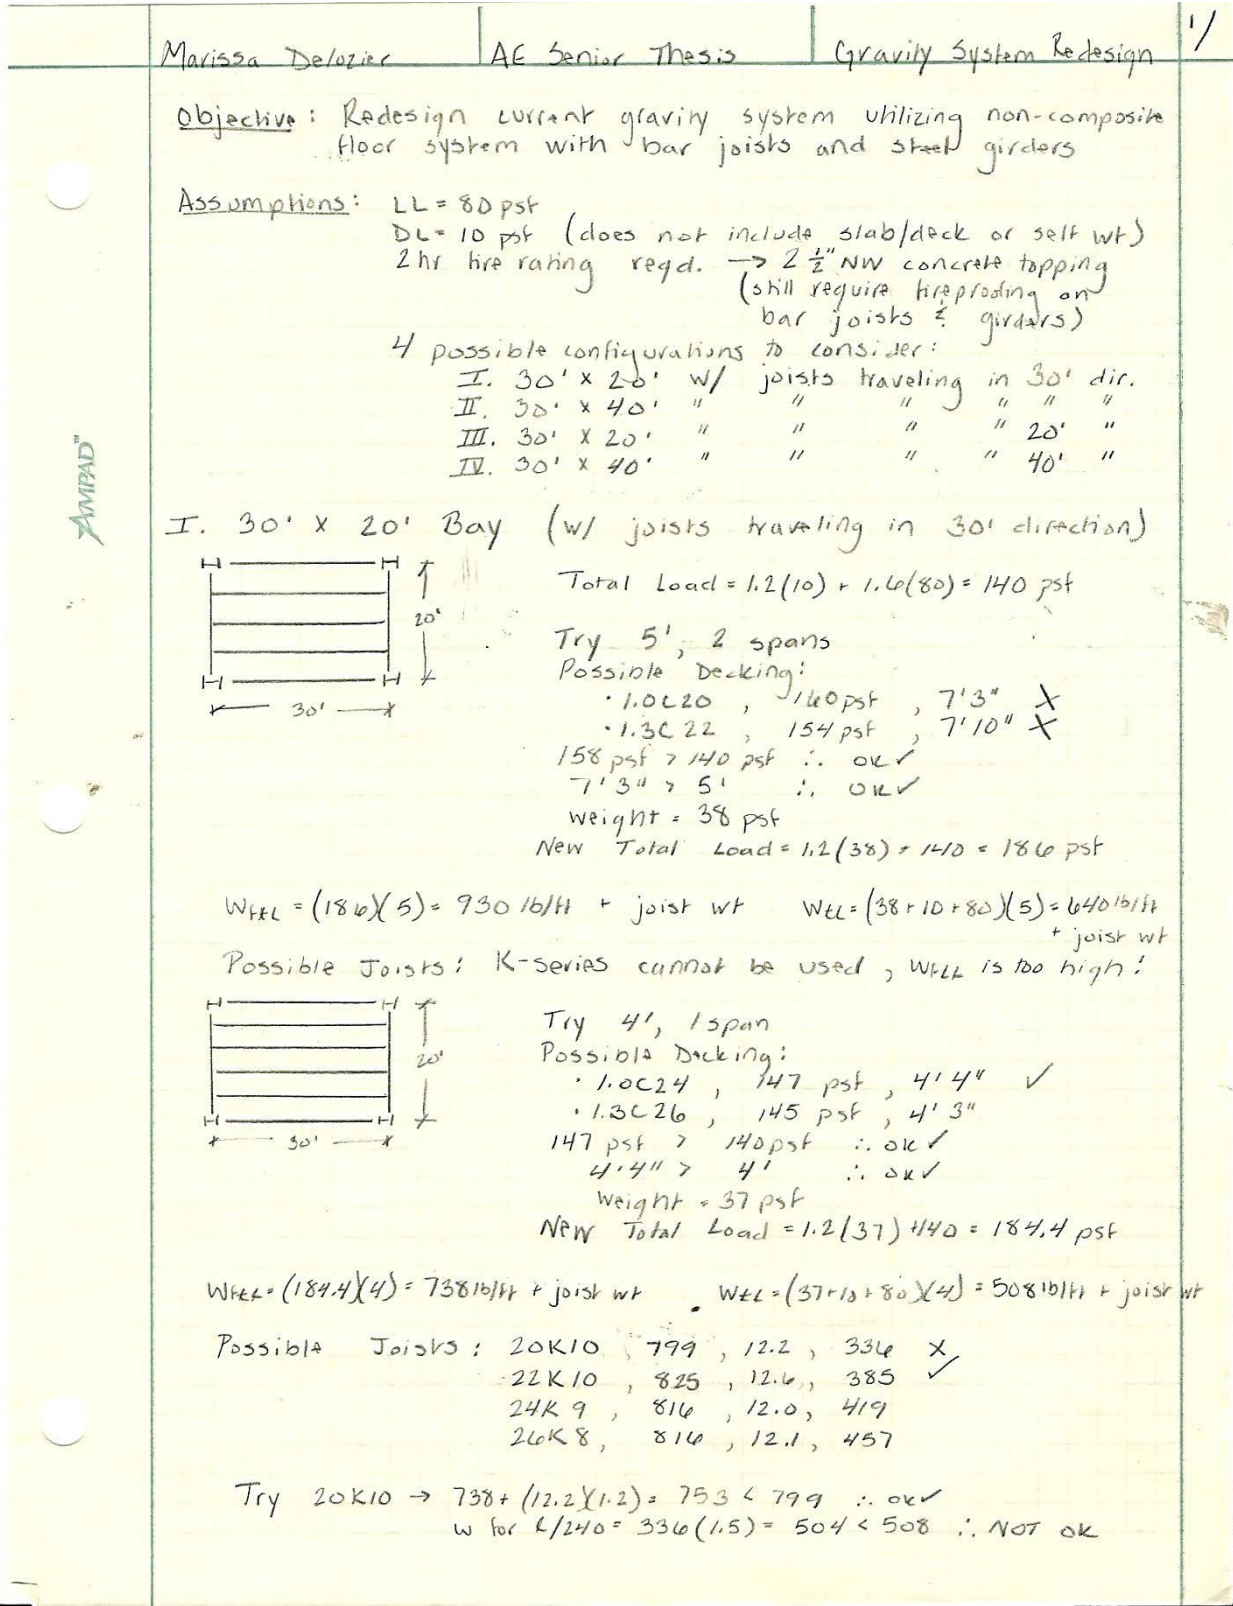 Marissa Delozier | AE Senior Thesis | Gravity System Redesign 1/
Objective: Redesign current gravity system utilizing non-composite
floor system with bar joists and steel girders
Assumptions: LL = 80 psf
DL = 10 psf (does not include slab/deck or self wt)
2 hr fire rating reqd. → 2 1/2" NW concrete topping
(still require fireproofing on
bar joists & girders)
4 possible configurations to consider:
I. 30' x 20' w/ joists traveling in 30' dir.
II. 30' x 40' " " " " " "
III. 30' x 20' " " " " 20' "
IV. 30' x 40' " " " " 40' "
AMPAD™
I. 30' x 20' Bay (w/ joists traveling in 30' direction)
Total Load = 1.2(10) + 1.6(80) = 140 psf
20'
30'
Try 5', 2 spans
Possible Decking:
· 1.0C20, 160 psf, 7'3" X
· 1.3C22, 154 psf, 7'10" X
158 psf > 140 psf ∴ ok ✓
7'3" > 5' ∴ ok ✓
weight = 38 psf
New Total Load = 1.2(38) + 140 = 186 psf
WFLL = (186)(5) = 930 lb/ft + joist wt WLL = (38+10+80)(5) = 640 lb/ft
+ joist wt
Possible Joists: K-series cannot be used, WFLL is too high!
20'
30'
Try 4', 1 span
Possible Decking:
· 1.0C24, 147 psf, 4'4" ✓
· 1.3C26, 145 psf, 4'3"
147 psf > 140 psf ∴ ok ✓
4'4" > 4' ∴ ok ✓
Weight = 37 psf
New Total Load = 1.2(37) + 140 = 184.4 psf
WFLL = (184.4)(4) = 738 lb/ft + joist wt WLL = (37+10+80)(4) = 508 lb/ft + joist wt
Possible Joists: 20K10, 799, 12.2, 336 X
22K10, 825, 12.6, 385 ✓
24K9, 816, 12.0, 419
26K8, 816, 12.1, 457
Try 20K10 → 738 + (12.2)(1.2) = 753 < 799 ∴ ok ✓
w for l/240 = 336(1.5) = 504 < 508 ∴ NOT ok